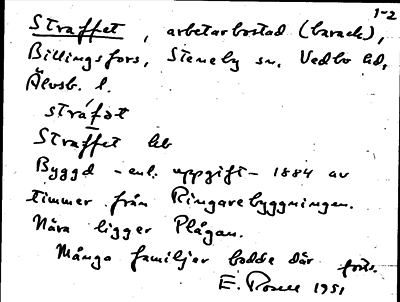 1-2
Straffet, arbetarbostad (barack),
Billingsfors, Steneby sn. Vedbo hd,
Älvsb. l.
stráfət
Straffet bb
Byggd - enl. uppgift - 1884 av
timmer från Ringarebyggningen.
Nära ligger Plågan.
Många familjer bodde där förr.
E. Rosell 1951